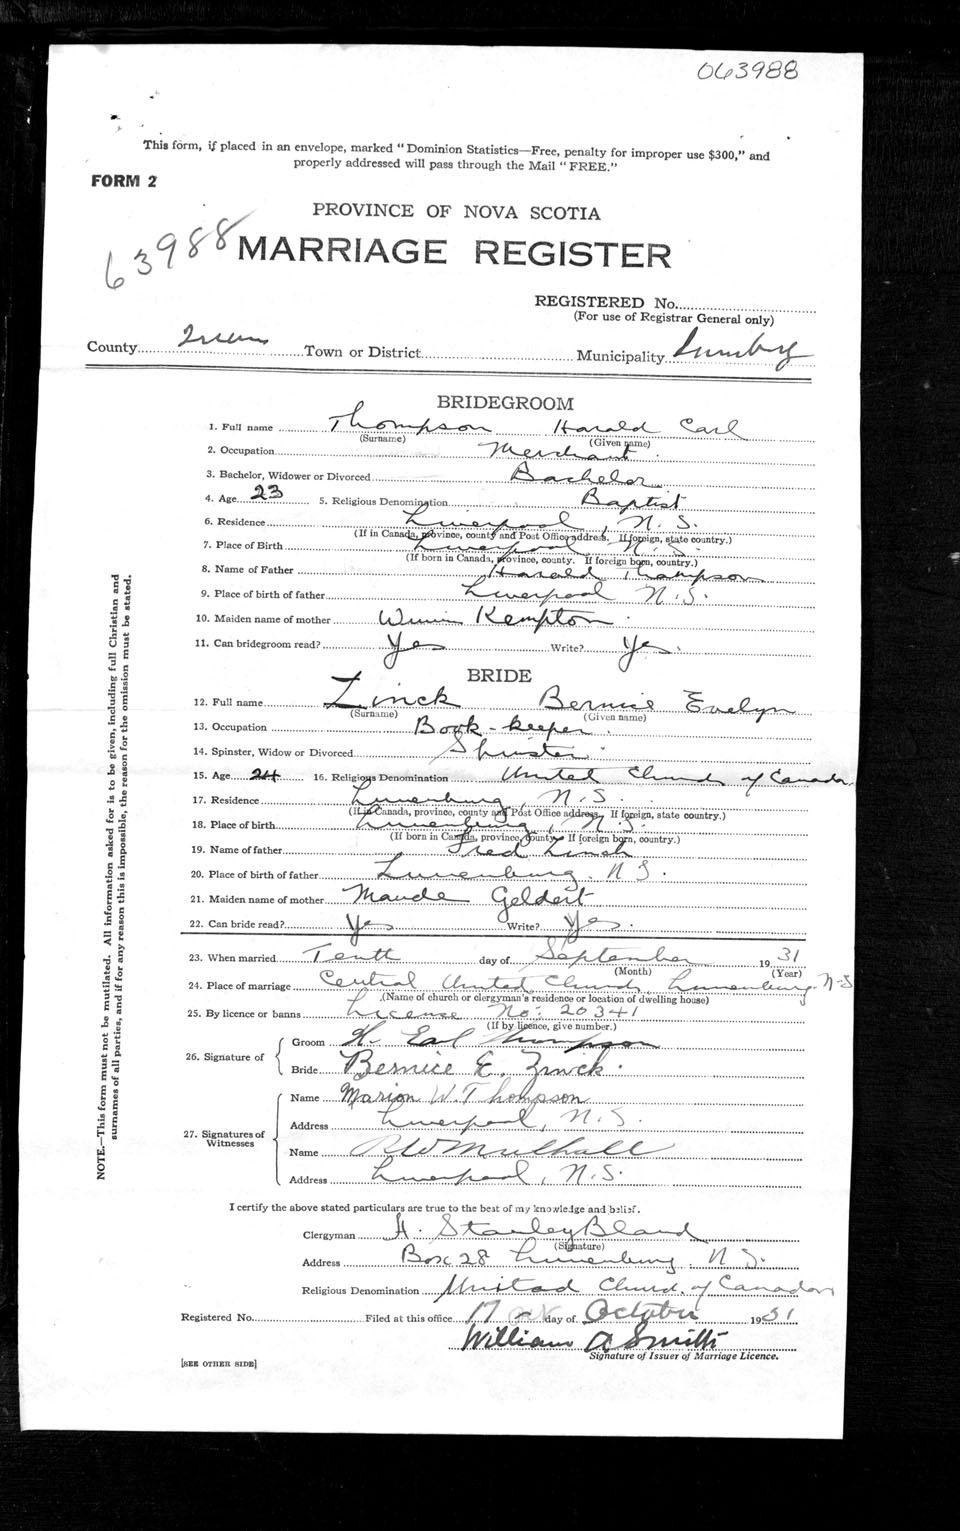 063988
This form, if placed in an envelope, marked "Dominion Statistics—Free, penalty for improper use $300," and
properly addressed will pass through the Mail "FREE."
FORM 2
PROVINCE OF NOVA SCOTIA
63988
MARRIAGE REGISTER
REGISTERED No.
(For use of Registrar General only)
County Town or District Municipality Lunenburg
BRIDEGROOM
1. Full name Thompson Harald Carl
(Surname) (Given name)
2. Occupation Merchant
3. Bachelor, Widower or Divorced Bachelor
4. Age 23 5. Religious Denomination Baptist
6. Residence Liverpool, N.S.
(If in Canada, province, county and Post Office address. If foreign, state country.)
7. Place of Birth Liverpool N.S.
(If born in Canada, province, county. If foreign born, country.)
8. Name of Father Harald Thompson
9. Place of birth of father Liverpool N.S.
10. Maiden name of mother Kempton
11. Can bridegroom read? Yes Write? Yes.
BRIDE
12. Full name Zinck Bernice Evelyn
(Surname) (Given name)
13. Occupation Book-keeper.
14. Spinster, Widow or Divorced Spinster
15. Age 24 16. Religious Denomination United Church of Canada
17. Residence Lunenburg, N.S.
(If in Canada, province, county and Post Office address. If foreign, state country.)
18. Place of birth Lunenburg, N.S.
(If born in Canada, province, county. If foreign born, country.)
19. Name of father Fred Zinck
20. Place of birth of father Lunenburg, N.S.
21. Maiden name of mother Maude Geldert
22. Can bride read? Yes Write? Yes.
23. When married Tenth day of September 1931
(Month) (Year)
24. Place of marriage Central United Church, Lunenburg. N-S
(Name of church or clergyman's residence or location of dwelling house)
25. By licence or banns License No: 20341
(If by licence, give number.)
26. Signature of Groom H. Earl Thompson
Bride Bernice E. Zinck.
27. Signatures of Witnesses
Name Marion W. Thompson
Address Liverpool, N.S.
Name Mulhall
Address Liverpool, N.S.
I certify the above stated particulars are true to the best of my knowledge and belief.
Clergyman H. Stanley Bland
(Signature)
Address Box 28 Lunenburg, N.S.
Religious Denomination United Church of Canada
Registered No. Filed at this office 17 day of October 1931
William A Smith
Signature of Issuer of Marriage Licence.
[SEE OTHER SIDE]
NOTE.—This form must not be mutilated. All information asked for is to be given, including full Christian and
surnames of all parties, and if for any reason this is impossible, the reason for the omission must be stated.